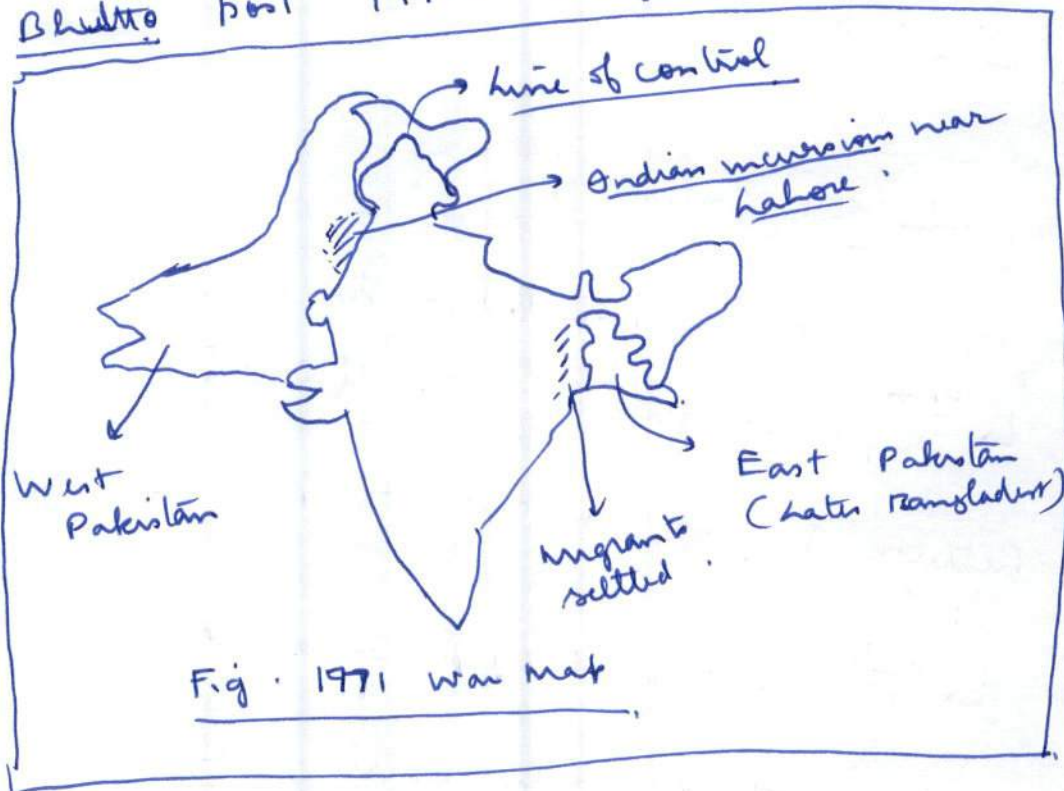 Bhutto post
Line of control
Indian incursion near
Lahore.
West
Pakistan
East Pakistan
(Later Bangladesh)
migrants
settled.
Fig. 1971 war map